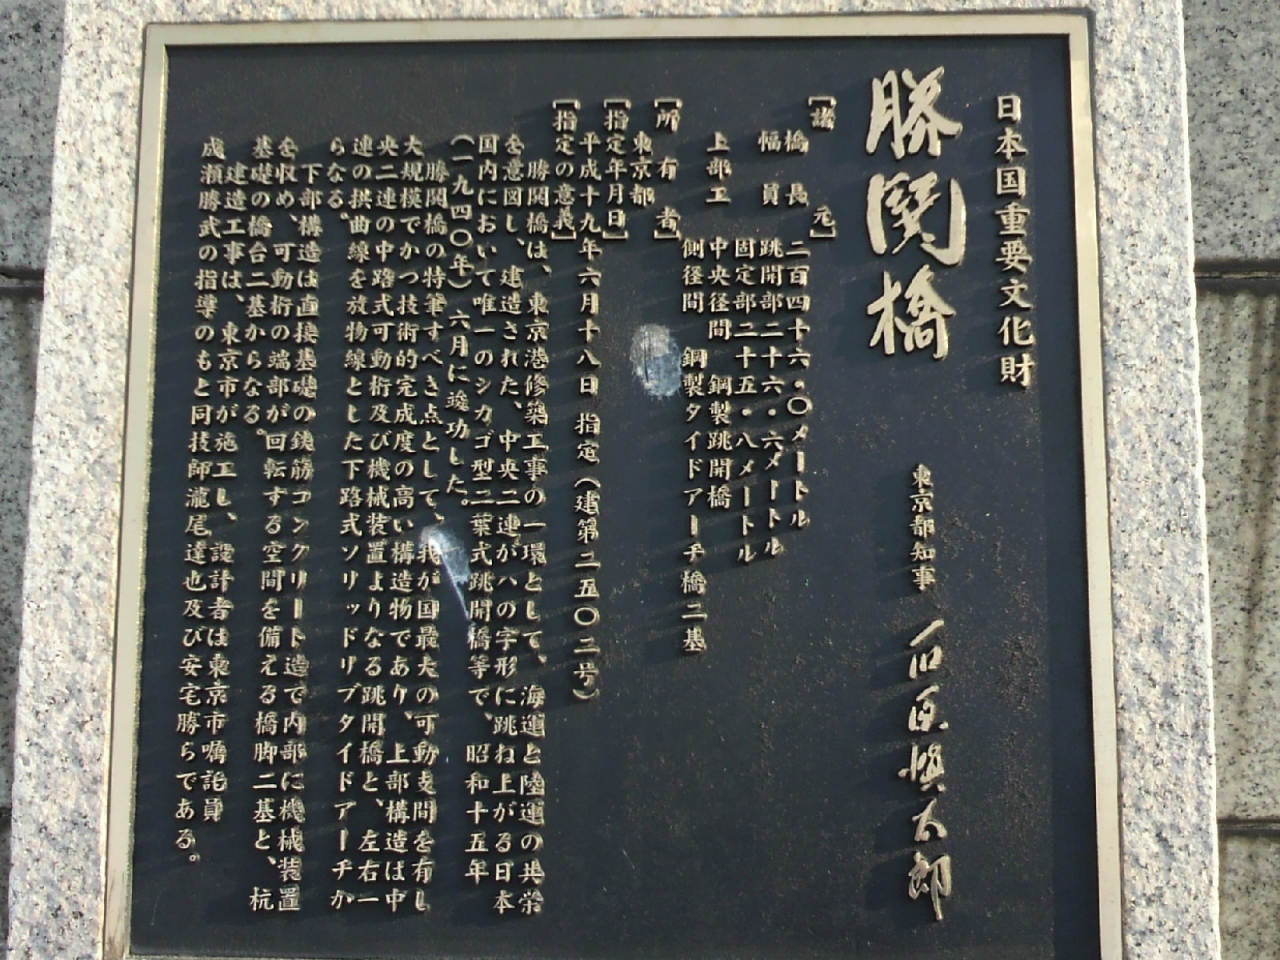 日本国重要文化財
勝鬨橋
東京都知事 石原慎太郎
［諸元］
橋長 二百四十六・〇メートル
幅員 跳開部二十六・六メートル
固定部二十五・八メートル
上部工 中央径間 鋼製跳開橋
側径間 鋼製タイドアーチ橋二基
［所有者］
東京都
［指定年月日］
平成十九年六月十八日 指定（建第二五〇二号）
［指定の意義］
勝鬨橋は、東京港修築工事の一環として、海運と陸運の共栄
を意図し、建造された、中央二連がハの字形に跳ね上がる日本
国内において唯一のシカゴ型二葉式跳開橋等で、昭和十五年
（一九四〇年）六月に竣功した。
勝鬨橋の特筆すべき点として、我が国最大の可動支間を有し
大規模でかつ技術的完成度の高い構造物であり、上部構造は中
央二連の中路式可動桁及び機械装置よりなる跳開橋と、左右一
連の拱曲線を放物線とした下路式ソリッドリブタイドアーチか
らなる。
下部構造は直接基礎の鉄筋コンクリート造で内部に機械装置
を収め、可動桁の端部が回転する空間を備える橋脚二基と、杭
基礎の橋台二基からなる。
建造工事は、東京市が施工し、設計者は東京市嘱託員
成瀬勝武の指導のもと同技師瀧尾達也及び安宅勝らである。